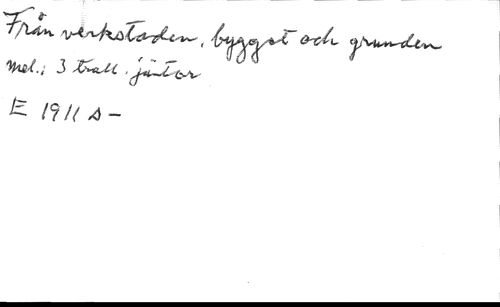 Från verkstaden, bygget och grunden
mel.; 3 trall. jäntor
E 1911 s-